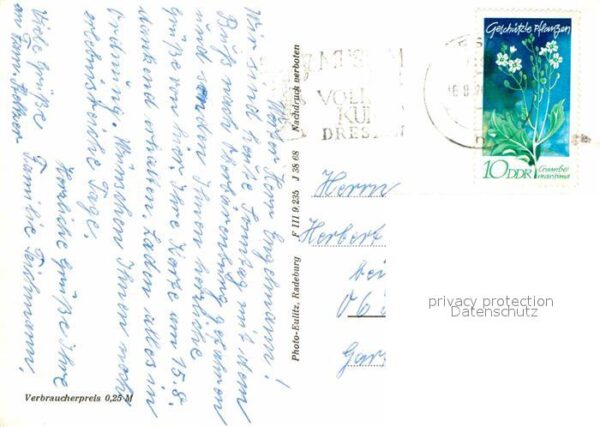 Werter Herr Engelmann!
Wir sind heute Sonntag mit dem
Bus nach Altweinberg gefahren
und senden Ihnen herzliche
Grüße von hier. Ihre Karte am 15.8.
dankend erhalten. Laden alles in
Ordnung. Wünschen Ihnen noch
erlebnisreiche Tage.
Herzliche Grüße Ihre
Viele Grüße Familie Teichmann.
an Frau
Verbraucherpreis 0,25 M
Photo-Eulitz, Radeburg F III 9.235 J 35 68 Nachdruck verboten
MUSEUM
VOLK
KUN
DRESDEN
Geschützte Pflanzen
10 DDR Crambe maritima
Herrn
Herbert
bei
Gar
privacy protection
Datenschutz